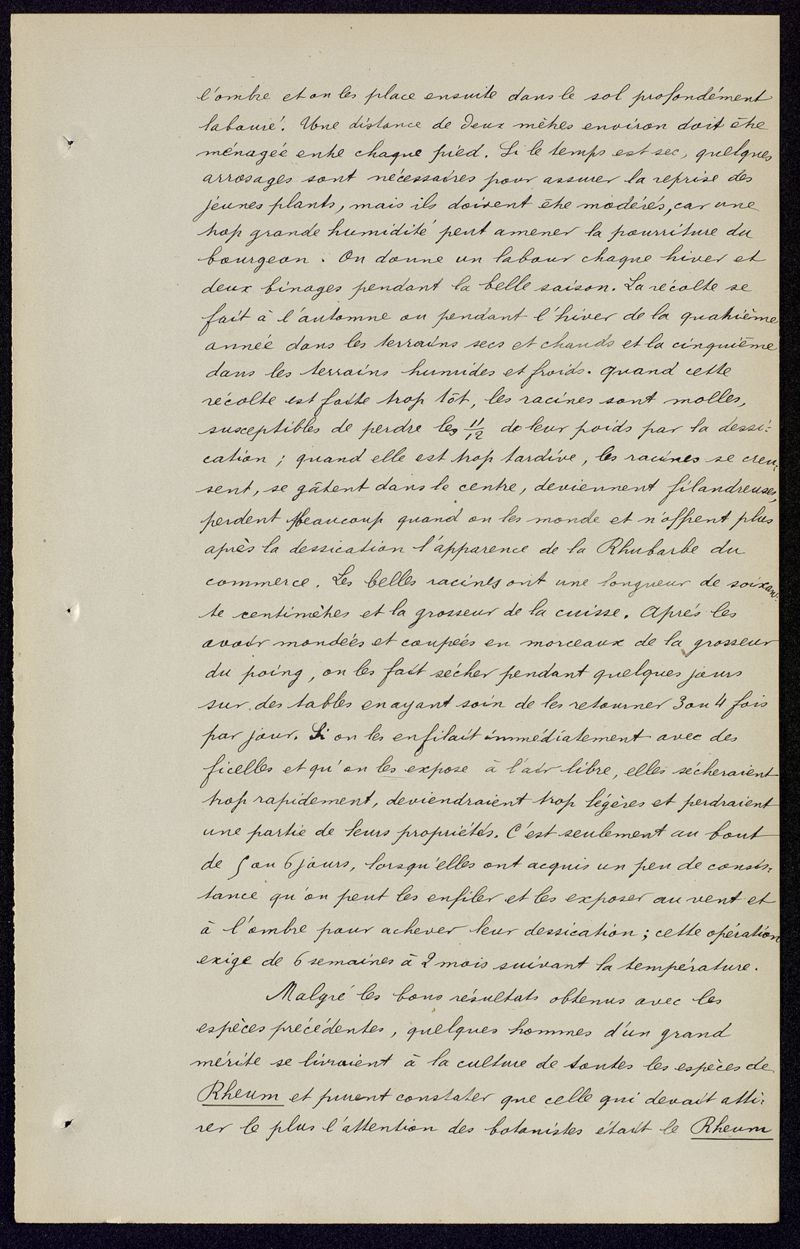 l'ombre et on les place ensuite dans le sol profondément
labouré. Une distance de deux mètres environ doit être
ménagée entre chaque pied. Si le temps est sec, quelques
arrosages sont nécessaires pour assurer la reprise des
jeunes plants, mais ils doivent être modérés, car une
trop grande humidité peut amener la pourriture du
bourgeon. On donne un labour chaque hiver et
deux binages pendant la belle saison. La récolte se
fait à l'automne ou pendant l'hiver de la quatrième
année dans les terrains secs et chauds et la cinquième
dans les terrains humides et froids. Quand cette
récolte est faite trop tôt, les racines sont molles,
susceptibles de perdre les 11/12 de leur poids par la dessi-
cation ; quand elle est trop tardive, les racines se creu-
sent, se gâtent dans le centre, deviennent filandreuses,
perdent beaucoup quand on les monde et n'offrent plus
après la dessication l'apparence de la Rhubarbe du
commerce. Les belles racines ont une longueur de soixan-
te centimètres et la grosseur de la cuisse. Après les
avoir mondées et coupées en morceaux de la grosseur
du poing, on les fait sécher pendant quelques jours
sur des tables en ayant soin de les retourner 3 ou 4 fois
par jour. Si on les enfilait immédiatement avec des
ficelles et qu'on les expose à l'air libre, elles sécheraient
trop rapidement, deviendraient trop légères et perdraient
une partie de leurs propriétés. C'est seulement au bout
de 5 ou 6 jours, lorsqu'elles ont acquis un peu de consis-
tance qu'on peut les enfiler et les exposer au vent et
à l'ombre pour achever leur dessication ; cette opération
exige de 6 semaines à 2 mois suivant la température.
Malgré les bons résultats obtenus avec les
espèces précédentes, quelques hommes d'un grand
mérite se livraient à la culture de toutes les espèces de
Rheum et purent constater que celle qui devait atti-
rer le plus l'attention des botanistes était le Rheum